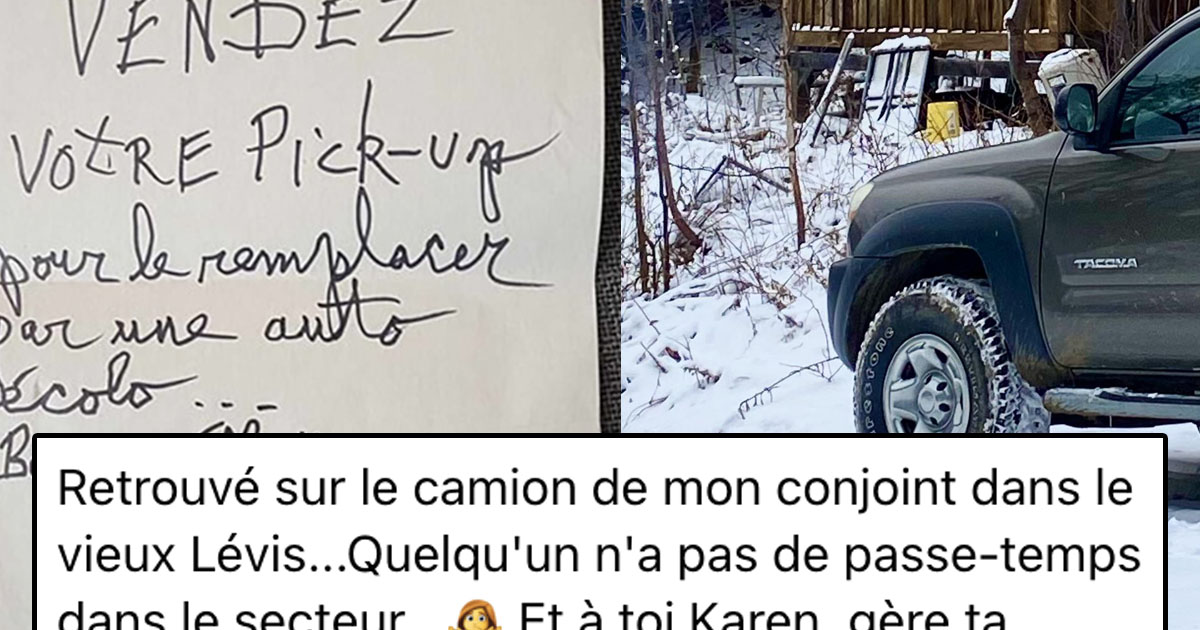 VENDEZ
VOTRE Pick-up
pour le remplacer
par une autto
écolo...
TACOMA
Firestone
Retrouvé sur le camion de mon conjoint dans le
vieux Lévis...Quelqu'un n'a pas de passe-temps
dans le secteur... 🤷‍♀️ Et à toi Karen, gère ta